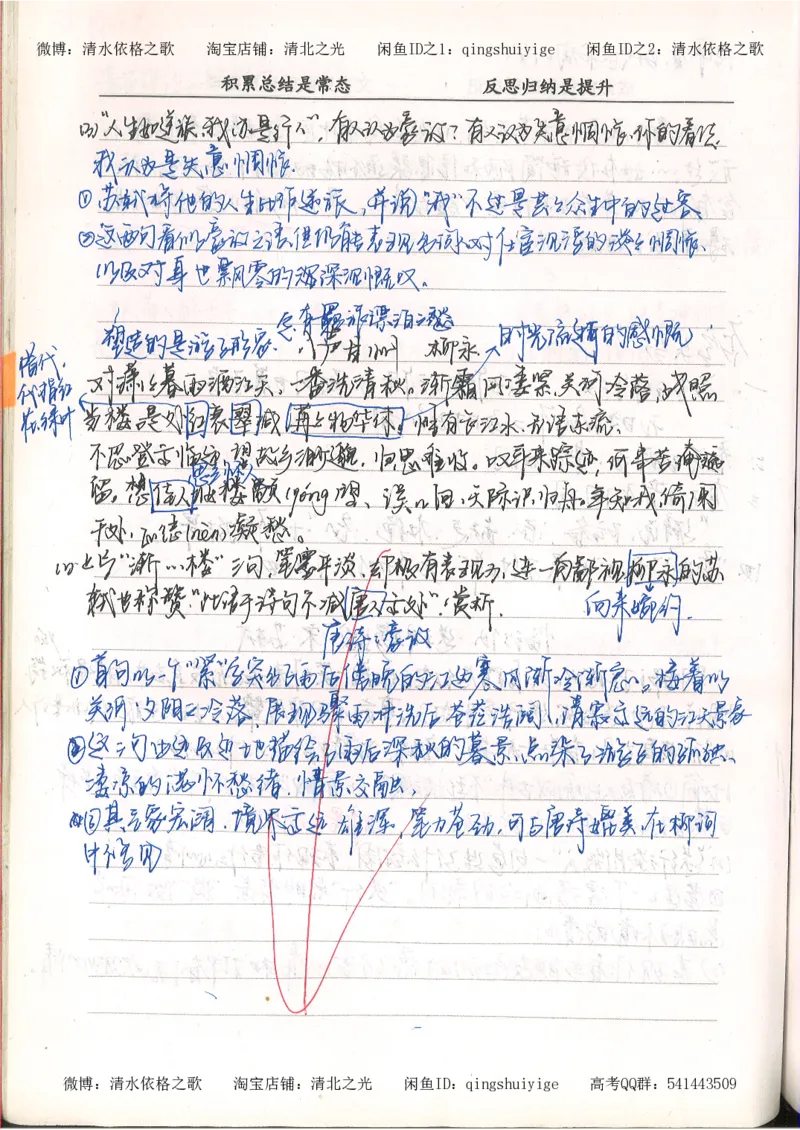 微博：清水依格之歌 淘宝店铺：清北之光 闲鱼ID之1：qingshuiyige 闲鱼ID之2：清水依格之歌
积累总结是常态 反思归纳是提升
(2)“人生如逆旅，我亦是行人”，有人认为豪放？有人认为失意惆怅，你的看法
我认为是失意惆怅.
①苏轼将他的人生比作逆旅，并说“我”不过是芸芸众生中的过客
②这两句看似豪放之语，但仍能表现出词人对仕宦沉浮的淡淡惆怅、
以及对身世飘零的深深慨叹。
含羁旅漂泊之愁
塑造的是游子形象. 八声甘州 柳永 时光流逝的感慨
借代，
代指红
花绿叶
对潇潇暮雨洒江天，一番洗清秋。渐霜风凄紧，关河冷落，残照
当楼。是处红衰翠减，苒苒物华休。惟有长江水，无语东流。
不忍登高临远，望故乡渺邈，归思难收。叹年来踪迹，何事苦淹
留。想佳人妆楼颙(yóng)望、误几回、天际识归舟。争知我，倚阑
干处，正恁(nèn)凝愁。
(1)上片“渐…楼”三句，笔墨平淡，却极有表现力，连一向鄙视柳永的苏
轼也称赞“此语于诗句不减唐人高处”，赏析.
向来婉约.
唐诗：豪放
①首句以一个“紧”字突出了雨后傍晚的江边寒风渐冷渐急。接着以
关河、夕阳之冷落，展现骤雨冲洗后苍茫浩阔、清寂高远的江天景象
②这三句由远及近地描绘了雨后深秋的暮景，点染了游子的孤独、
凄凉的满怀愁绪，情景交融，
③其意象宏阔，境界高远雄浑，笔力苍劲，可与唐诗媲美，在柳词
中罕见
微博：清水依格之歌 淘宝店铺：清北之光 闲鱼ID：qingshuiyige 高考QQ群：541443509